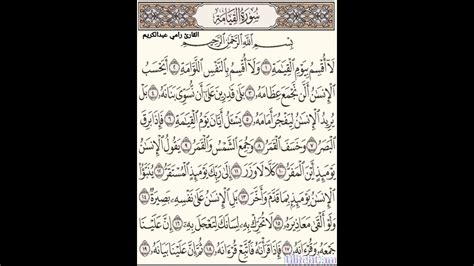 سُورَةُ القِيَامَة
القارئ رامي عبدالكريم
بِسْمِ اللَّهِ الرَّحْمَٰنِ الرَّحِيمِ
لَا أُقْسِمُ بِيَوْمِ الْقِيَامَةِ ١ وَلَا أُقْسِمُ بِالنَّفْسِ اللَّوَّامَةِ ٢ أَيَحْسَبُ
الْإِنسَانُ أَلَّن نَّجْمَعَ عِظَامَهُ ٣ بَلَىٰ قَادِرِينَ عَلَىٰ أَن نُّسَوِّيَ بَنَانَهُ ٤ بَلْ
يُرِيدُ الْإِنسَانُ لِيَفْجُرَ أَمَامَهُ ٥ يَسْأَلُ أَيَّانَ يَوْمُ الْقِيَامَةِ ٦ فَإِذَا بَرِقَ
الْبَصَرُ ٧ وَخَسَفَ الْقَمَرُ ٨ وَجُمِعَ الشَّمْسُ وَالْقَمَرُ ٩ يَقُولُ الْإِنسَانُ
يَوْمَئِذٍ أَيْنَ الْمَفَرُّ ١٠ كَلَّا لَا وَزَرَ ١١ إِلَىٰ رَبِّكَ يَوْمَئِذٍ الْمُسْتَقَرُّ ١٢ يُنَبَّأُ
الْإِنسَانُ يَوْمَئِذٍ بِمَا قَدَّمَ وَأَخَّرَ ١٣ بَلِ الْإِنسَانُ عَلَىٰ نَفْسِهِ بَصِيرَةٌ ١٤
وَلَوْ أَلْقَىٰ مَعَاذِيرَهُ ١٥ لَا تُحَرِّكْ بِهِ لِسَانَكَ لِتَعْجَلَ بِهِ ١٦ إِنَّ عَلَيْنَا
جَمْعَهُ وَقُرْآنَهُ ١٧ فَإِذَا قَرَأْنَاهُ فَاتَّبِعْ قُرْآنَهُ ١٨ ثُمَّ إِنَّ عَلَيْنَا بَيَانَهُ ١٩